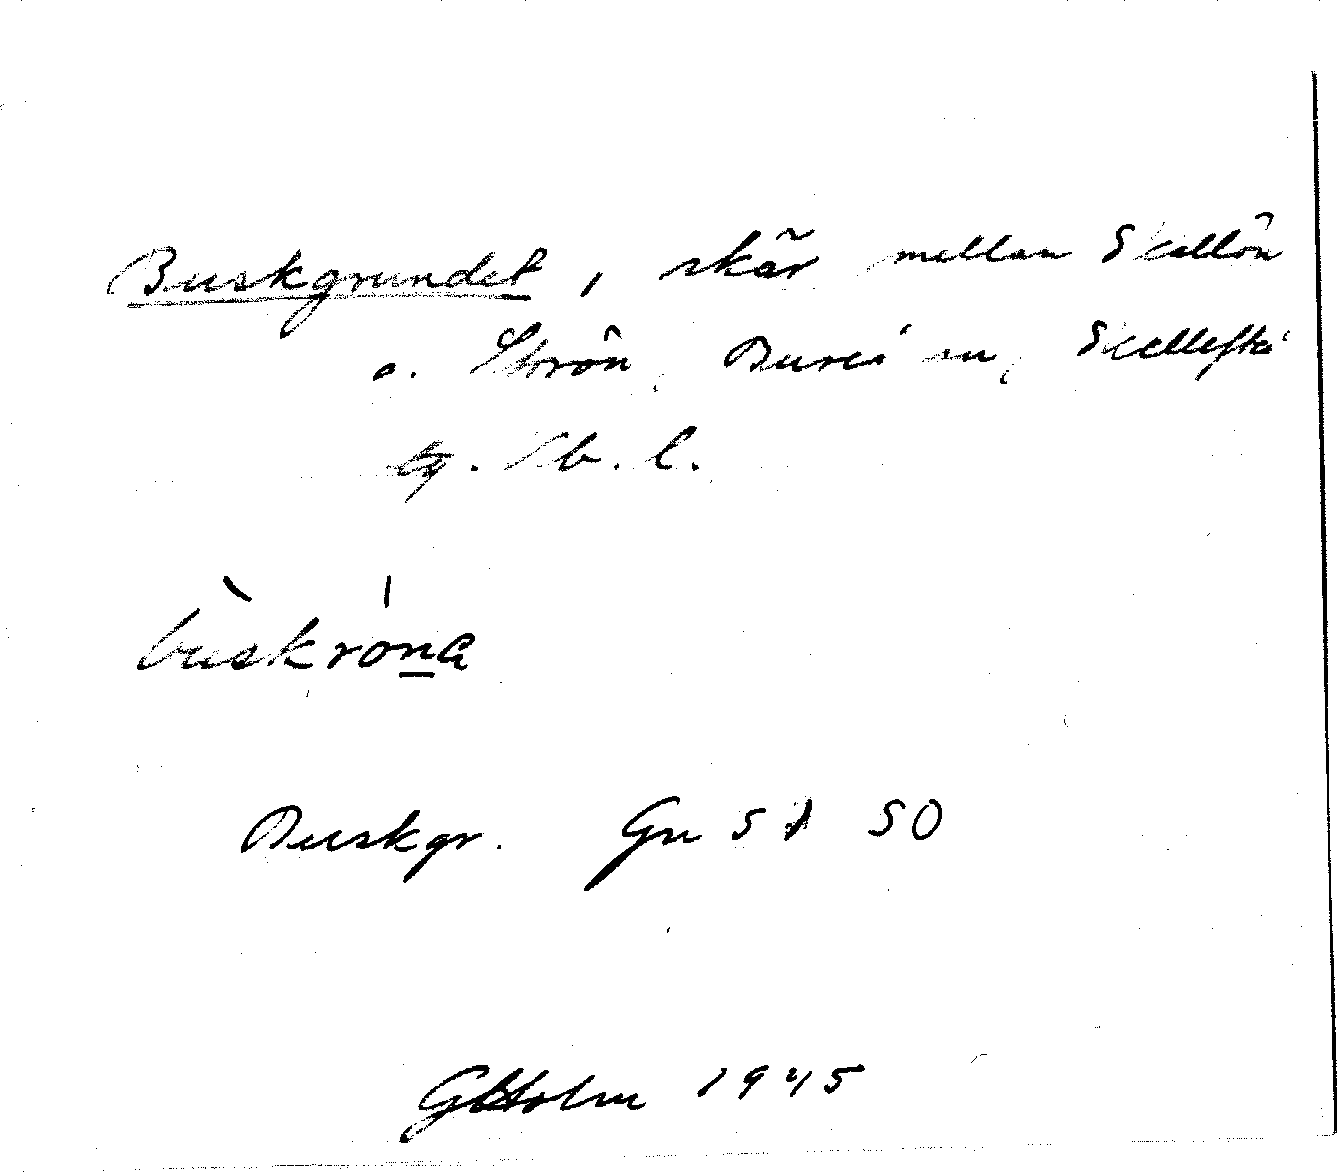 Buskgrundet, skär mellan Skellön
o. Storön, Bureå sn, Skellefteå
tg. Vb. l.
bùskróna
Buskgr. Gn 5 50
GHolm 1945